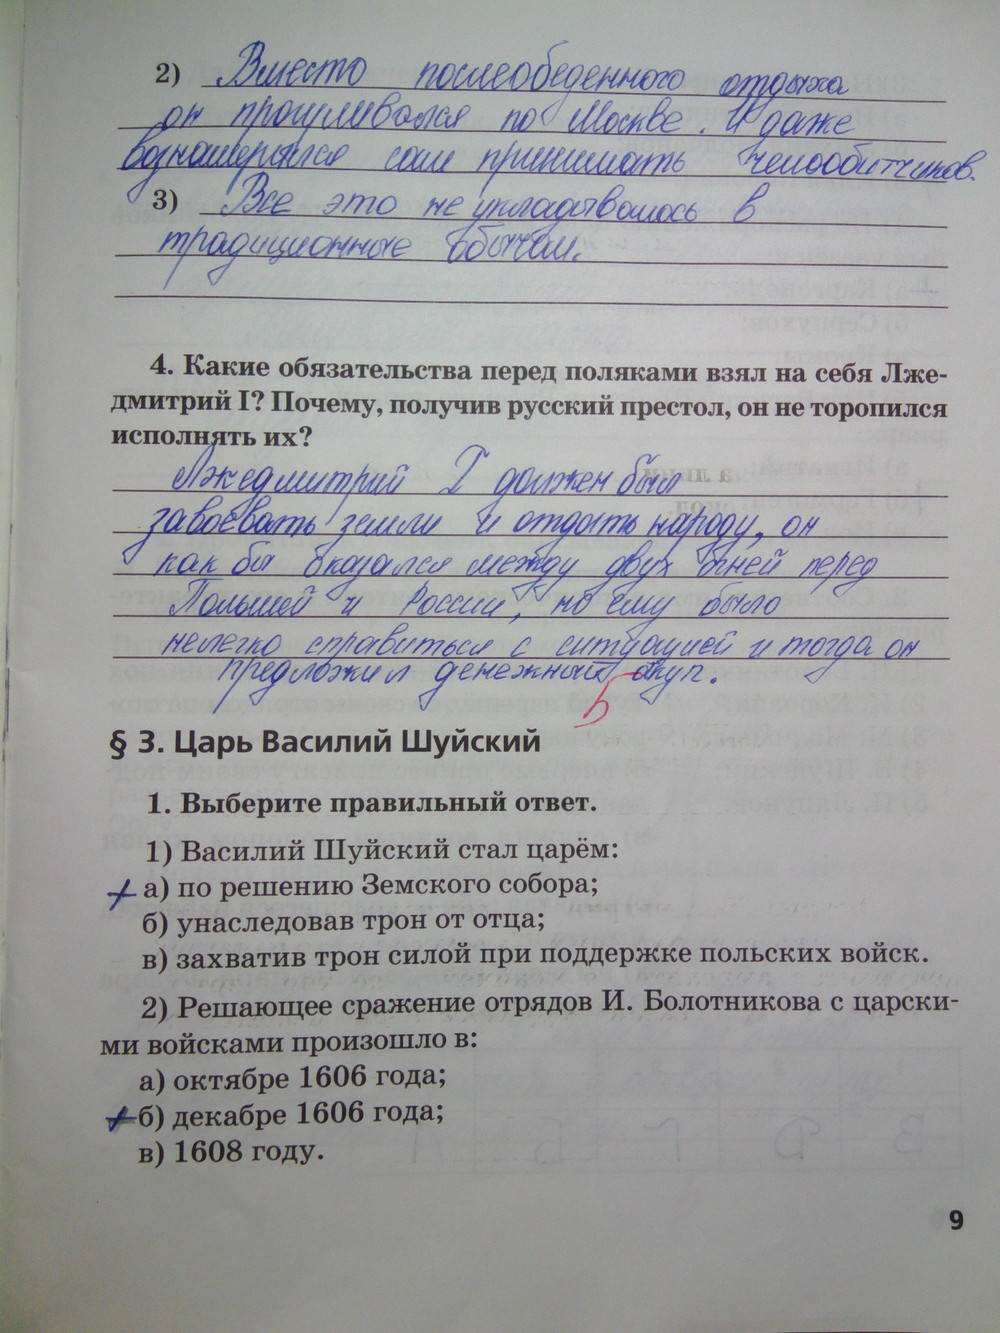 2) Вместо послеобеденного отдыха
он прогуливался по Москве. И даже
вознамерился сам принимать челообитчиков.
3) Все это не укладывалось в
традиционные обычаи.
4. Какие обязательства перед поляками взял на себя Лже-
дмитрий I? Почему, получив русский престол, он не торопился
исполнять их?
Лжедмитрий I должен был
завоевать земли и отдать народу, он
как бы оказался между двух огней перед
Польшей и Россией, но ему было
нелегко справиться с ситуацией и тогда он
предложил денежный выкуп.
5
§ 3. Царь Василий Шуйский
1. Выберите правильный ответ.
1) Василий Шуйский стал царём:
а) по решению Земского собора;
б) унаследовав трон от отца;
в) захватив трон силой при поддержке польских войск.
2) Решающее сражение отрядов И. Болотникова с царски-
ми войсками произошло в:
а) октябре 1606 года;
б) декабре 1606 года;
в) 1608 году.
9